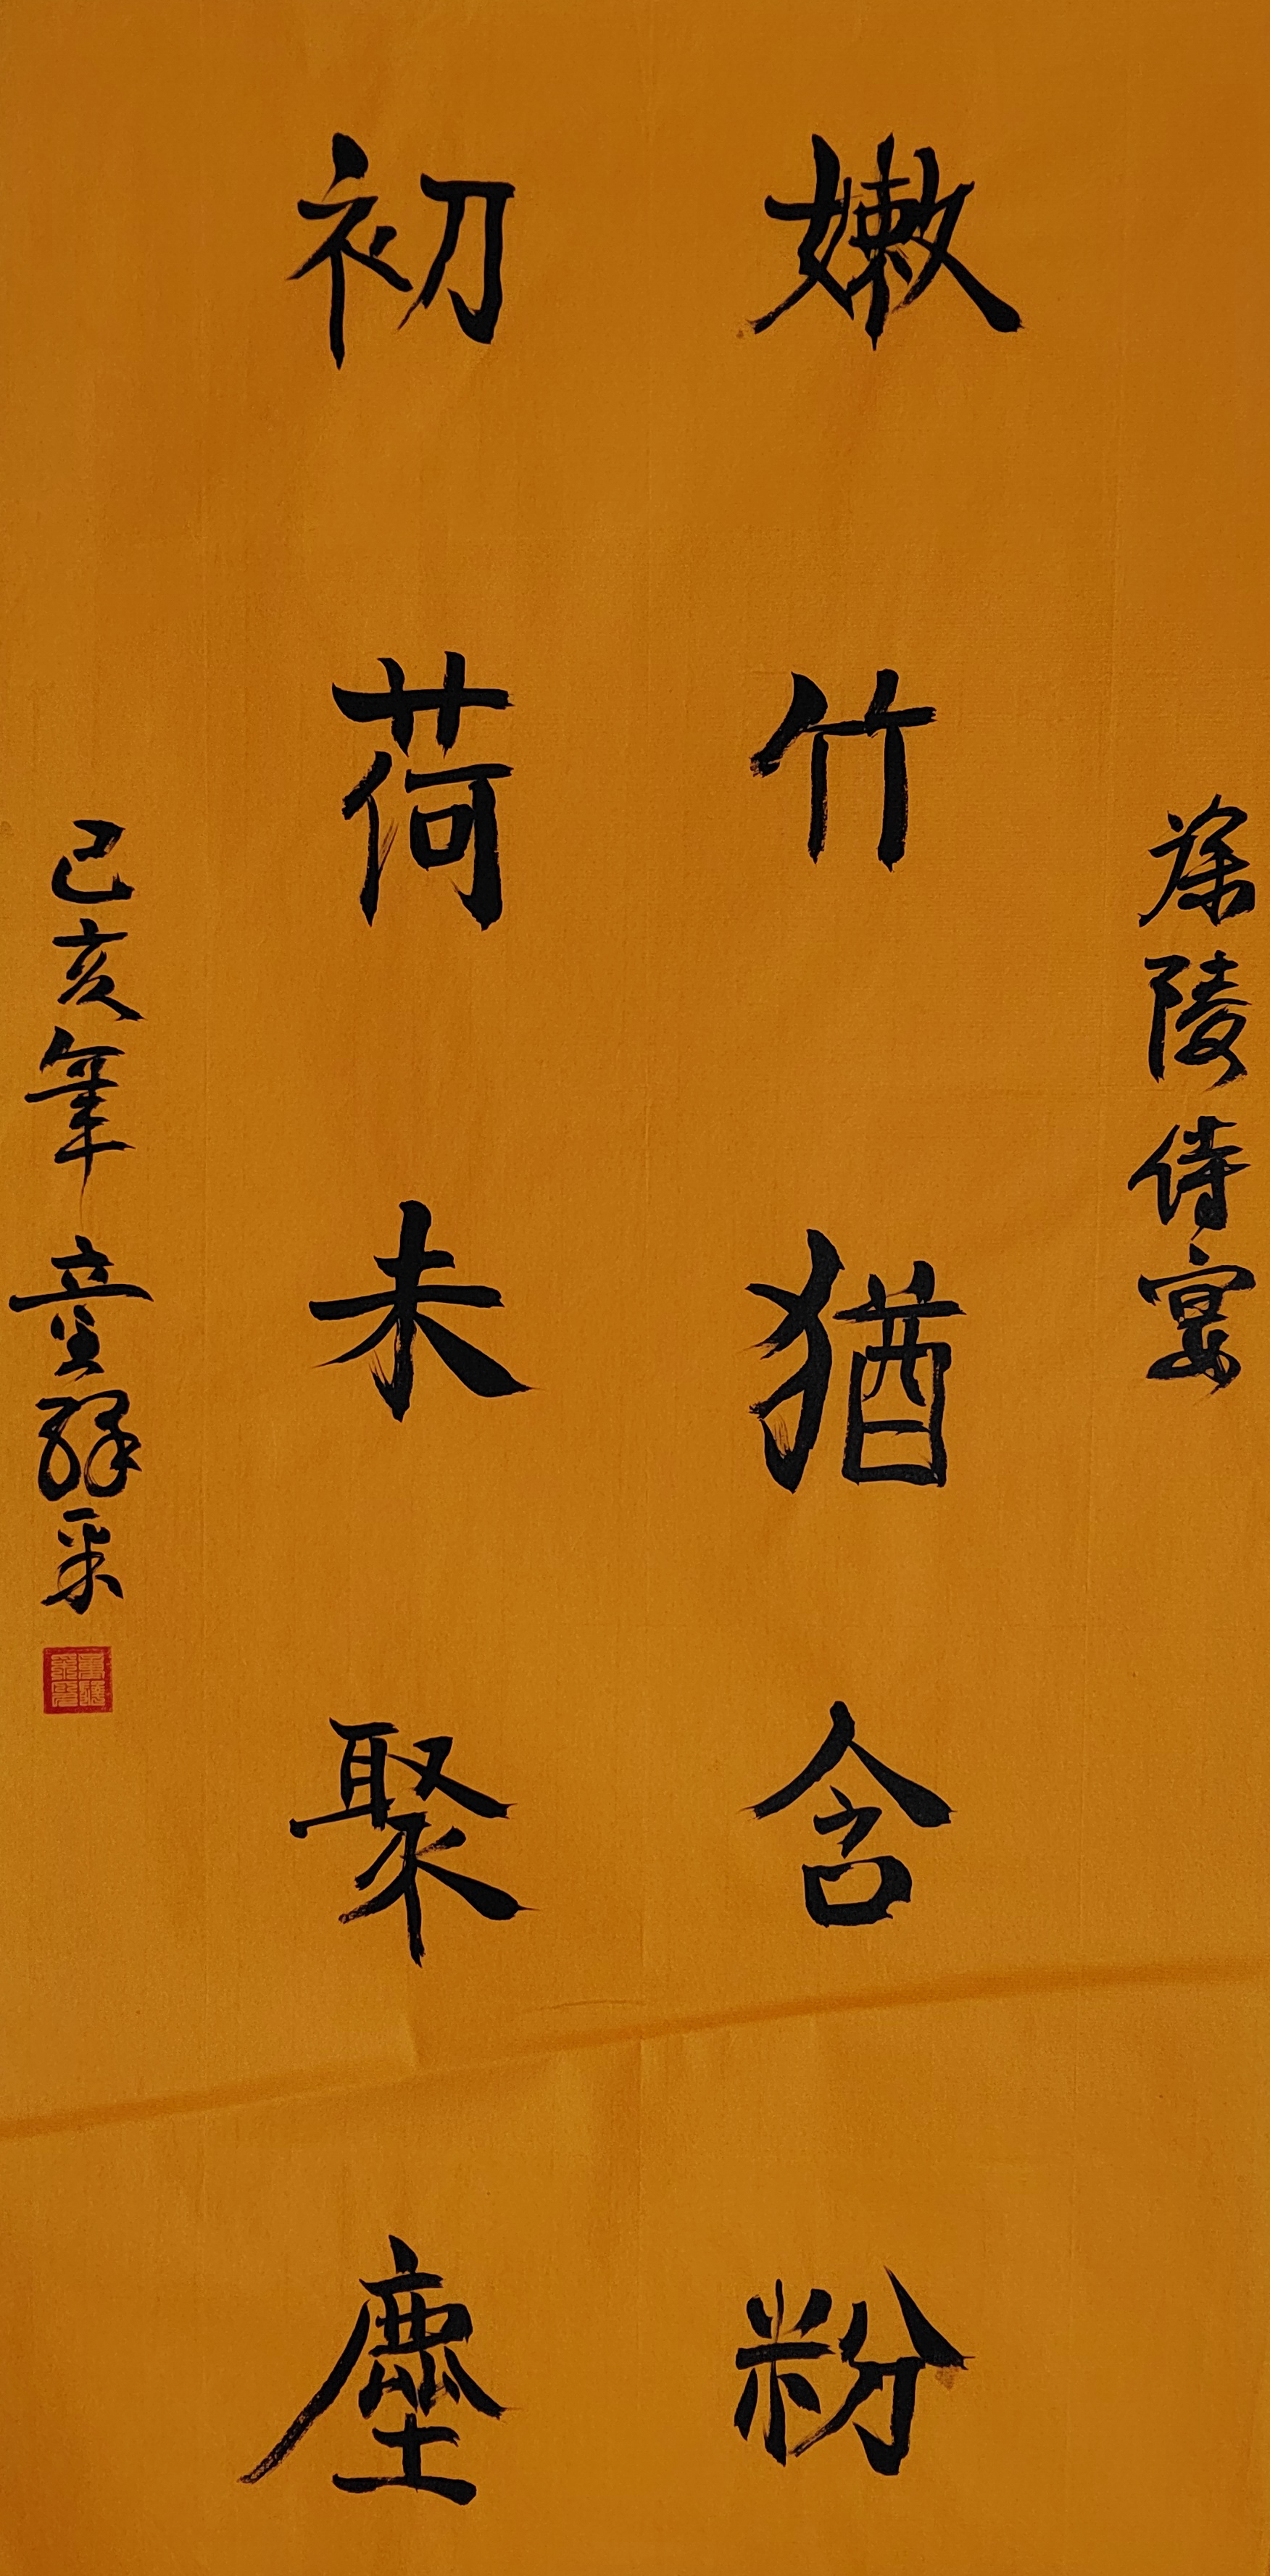 徐陵侍宴
嫩竹猶含粉
初荷未聚塵
己亥年